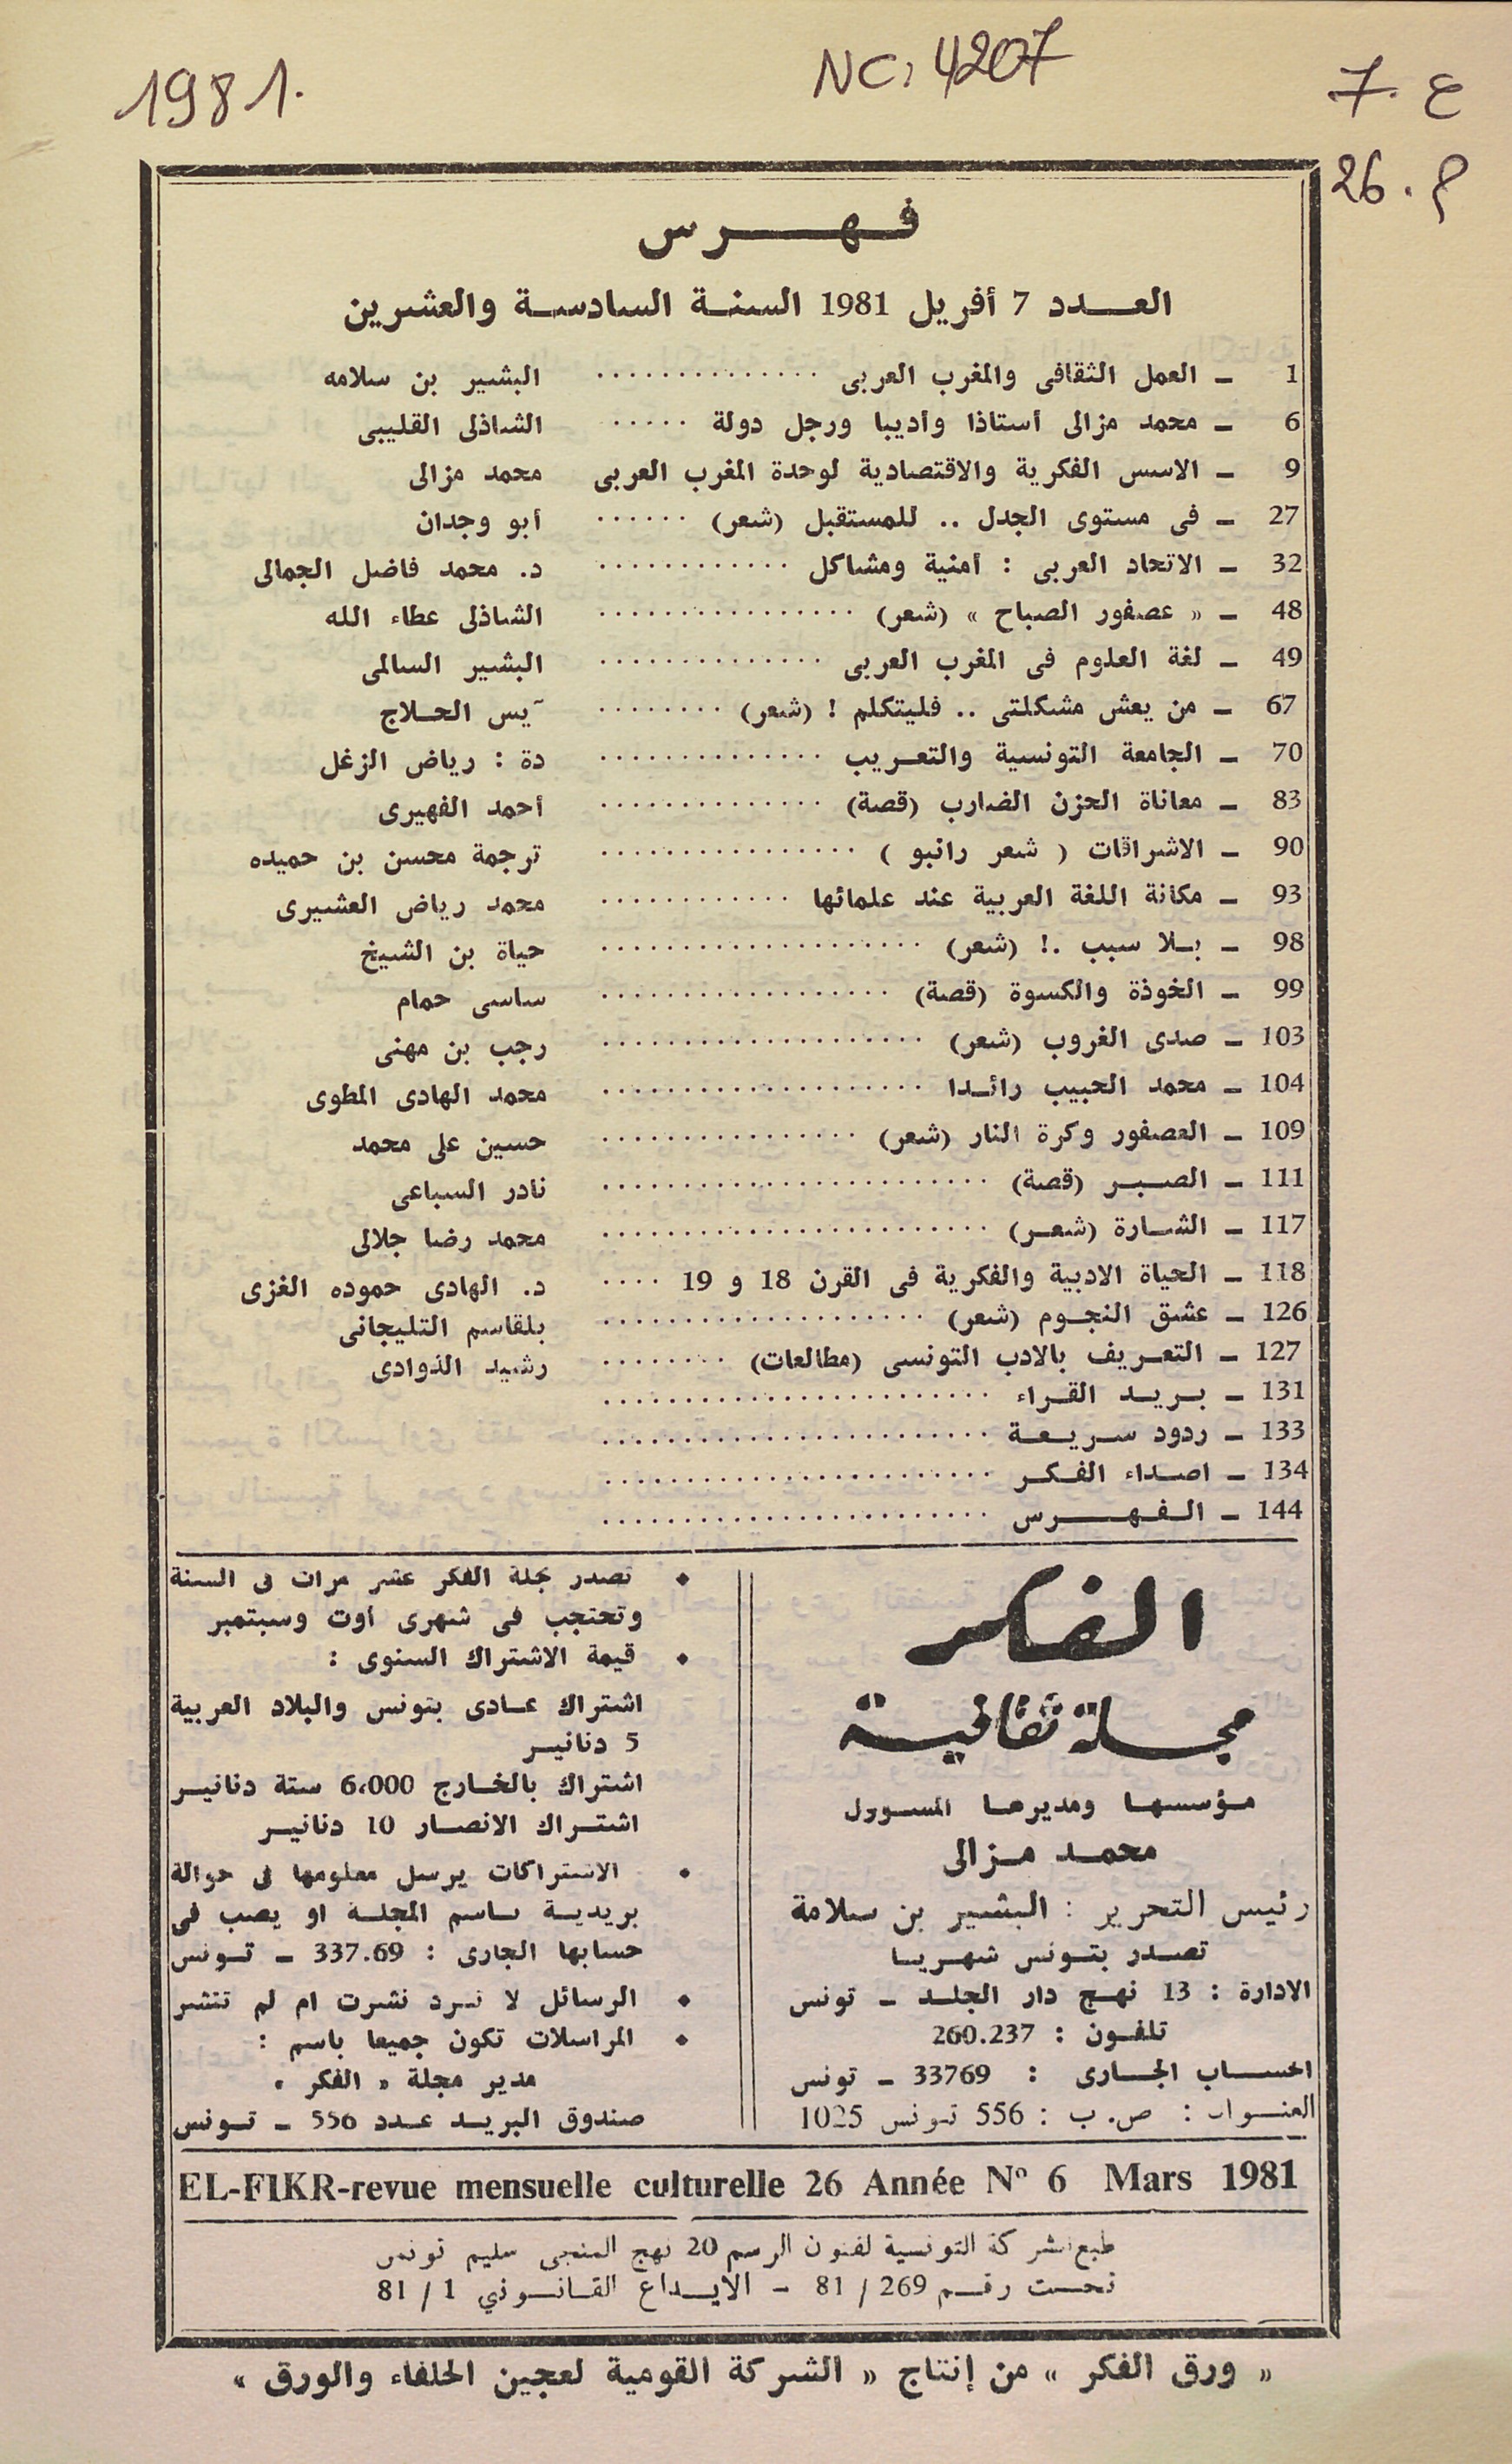 1981.
NC: 4207
ع . 7
م . 26
فهرس
العدد 7 أفريل 1981 السنة السادسة والعشرين
1 – العمل الثقافى والمغرب العربى .............. البشير بن سلامه
6 – محمد مزالى أستاذا وأديبا ورجل دولة ...... الشاذلى القليبى
9 – الاسس الفكرية والاقتصادية لوحدة المغرب العربى محمد مزالى
27 – فى مستوى الجدل .. للمستقبل (شعر) ...... أبو وجدان
32 – الاتحاد العربى : أمنية ومشاكل ............ د. محمد فاضل الجمالى
48 – « عصفور الصباح » (شعر) ................ الشاذلى عطاء الله
49 – لغة العلوم فى المغرب العربى .............. البشير السالمى
67 – من يعش مشكلتى .. فليتكلم ! (شعر) ........ آيس الحلاج
70 – الجامعة التونسية والتعريب .............. دة : رياض الزغل
83 – معاناة الحزن الضارب (قصة) .............. أحمد الفهيرى
90 – الاشراقات ( شعر رانبو ) ................ ترجمة محسن بن حميده
93 – مكانة اللغة العربية عند علمائها ............ محمد رياض العشيرى
98 – بلا سبب .! (شعر) .................... حياة بن الشيخ
99 – الخوذة والكسوة (قصة) .................. ساسى حمام
103 – صدى الغروب (شعر) .................... رجب بن مهنى
104 – محمد الحبيب رائدا .................... محمد الهادى المطوى
109 – العصفور وكرة النار (شعر) ................ حسين على محمد
111 – الصبر (قصة) ........................ نادر السباعى
117 – الشارة (شعر) ........................ محمد رضا جلالى
118 – الحياة الادبية والفكرية فى القرن 18 و 19 .... د. الهادى حموده الغزى
126 – عشق النجوم (شعر) .................... بلقاسم التليجانى
127 – التعريف بالادب التونسى (مطالعات) ........ رشيد الذوادى
131 – بريد القراء ........................
133 – ردود سريعة ........................
134 – اصداء الفكر ........................
144 – الفهرس ........................
الفكر
مجلة ثقافية
مؤسسها ومديرها المسؤول
محمد مزالى
رئيس التحرير : البشير بن سلامة
تصدر بتونس شهريا
الادارة : 13 نهج دار الجلد – تونس
تلفون : 260.237
الحساب الجارى : 33769 – تونس
العنوان : ص. ب : 556 تونس 1025
• تصدر مجلة الفكر عشر مرات فى السنة
وتحتجب فى شهرى أوت وسبتمبر
• قيمة الاشتراك السنوى :
اشتراك عادى بتونس والبلاد العربية
5 دنانير
اشتراك بالخارج 6،000 ستة دنانير
اشتراك الانصار 10 دنانير
• الاشتراكات يرسل معلومها فى حوالة
بريدية باسم المجلة او يصب فى
حسابها الجارى : 337.69 – تونس
• الرسائل لا ترد نشرت ام لم تنشر
• المراسلات تكون جميعا باسم :
مدير مجلة « الفكر »
صندوق البريد عدد 556 – تونس
EL-FIKR-revue mensuelle culturelle 26 Année Nº 6 Mars 1981
طبع الشركة التونسية لفنون الرسم 20 نهج المنجى سليم تونس
تحت رقم 269 / 81 – الايداع القانوني 1 / 81
« ورق الفكر » من إنتاج « الشركة القومية لعجين الحلفاء والورق »